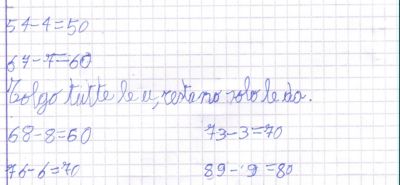 54-4=50
67-7=60
Tolgo tutte le u, restano solo le da.
68-8=60 73-3=70
76-6=70 89-9=80